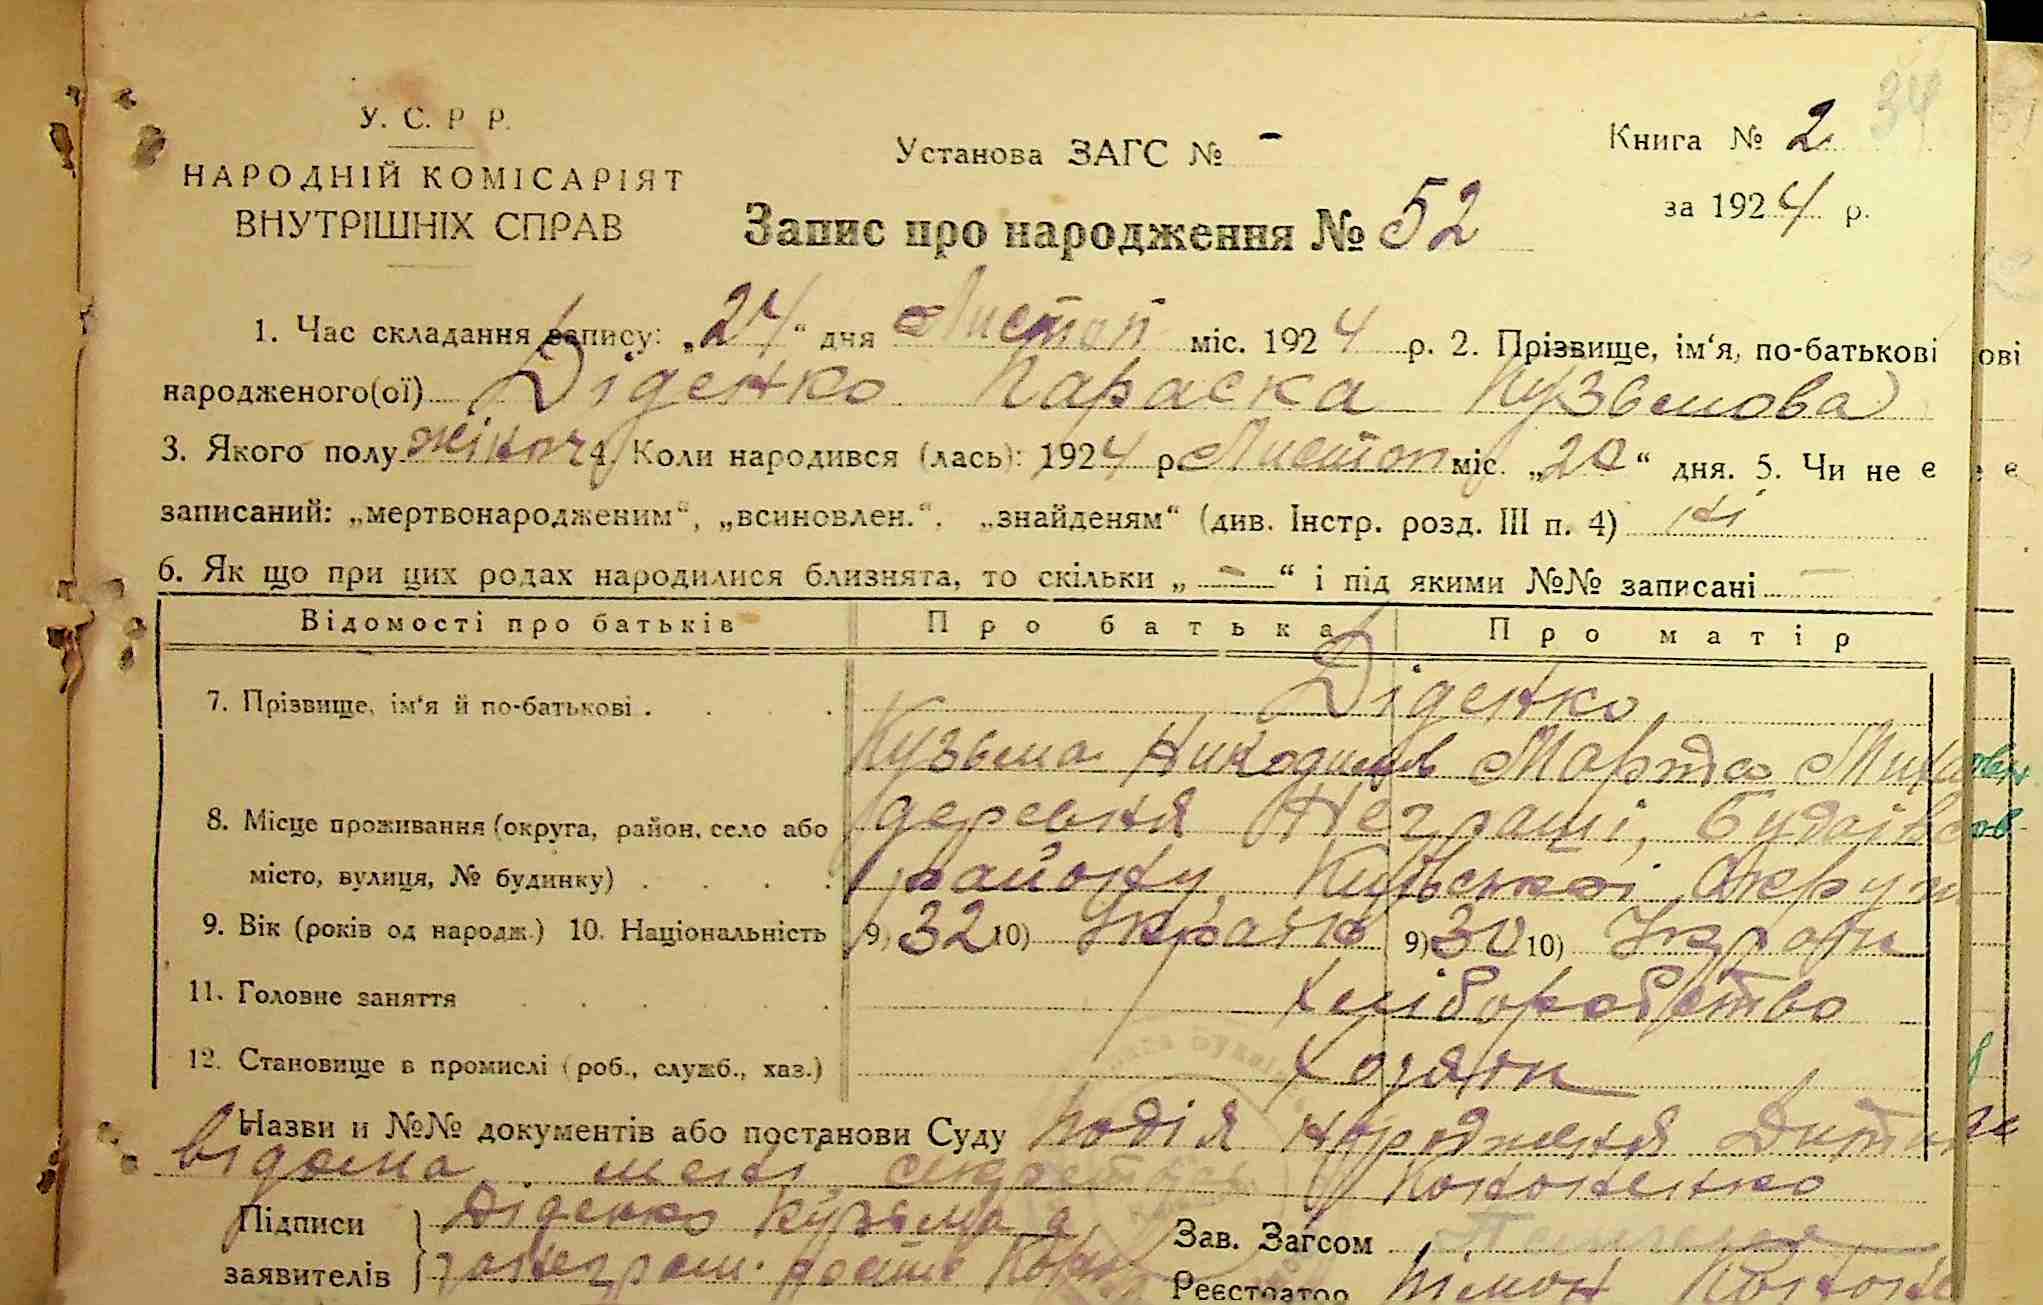 34
У. С. Р. Р.
НАРОДНІЙ КОМІСАРІЯТ
ВНУТРІШНІХ СПРАВ
Установа ЗАГС № -
Книга № 2
за 1924 р.
Запис про народження № 52
1. Час складання запису: „24“ дня Листоп міс. 1924 р. 2. Прізвище, ім‘я, по-батькові
народженого(ої) Діденко Параска Кузьмова
3. Якого полу жіноч 4. Коли народився (лась): 1924 р. Листоп міс. „20“ дня. 5. Чи не є
записаний: „мертвонародженим“, „всиновлен.“, „знайденям“ (див. Інстр. розд. III п. 4) ні
6. Як що при цих родах народилися близнята, то скільки „ - “ і під якими №№ записані -
Відомості про батьків Про батька Про матір
7. Прізвище, ім‘я й по-батькові . Діденко
Кузьма Никодимів Марта
8. Місце проживання (округа, район, село або деревня Неграші,
місто, вулиця, № будинку) . району, Київської Округи
9. Вік (років од народж.) 10. Національність 9) 32 10) Україн 9) 30 10) Україн
11. Головне заняття хліборобство
12. Становище в промислі (роб., служб., хаз.) Хозяїн
Назви и №№ документів або постанови Суду Подія народження Дитини
відома мені, секретар Кононенко
Підписи Діденко Кузьма а
заявителів неграм.
Зав. Загсом
Реєстратор Пімон